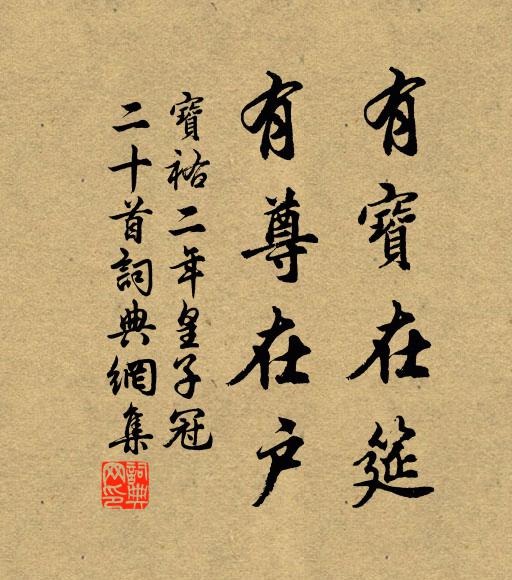 有寶在筵
有尊在户
寶祐二年皇子冠
二十首詞典網集
詞典网印